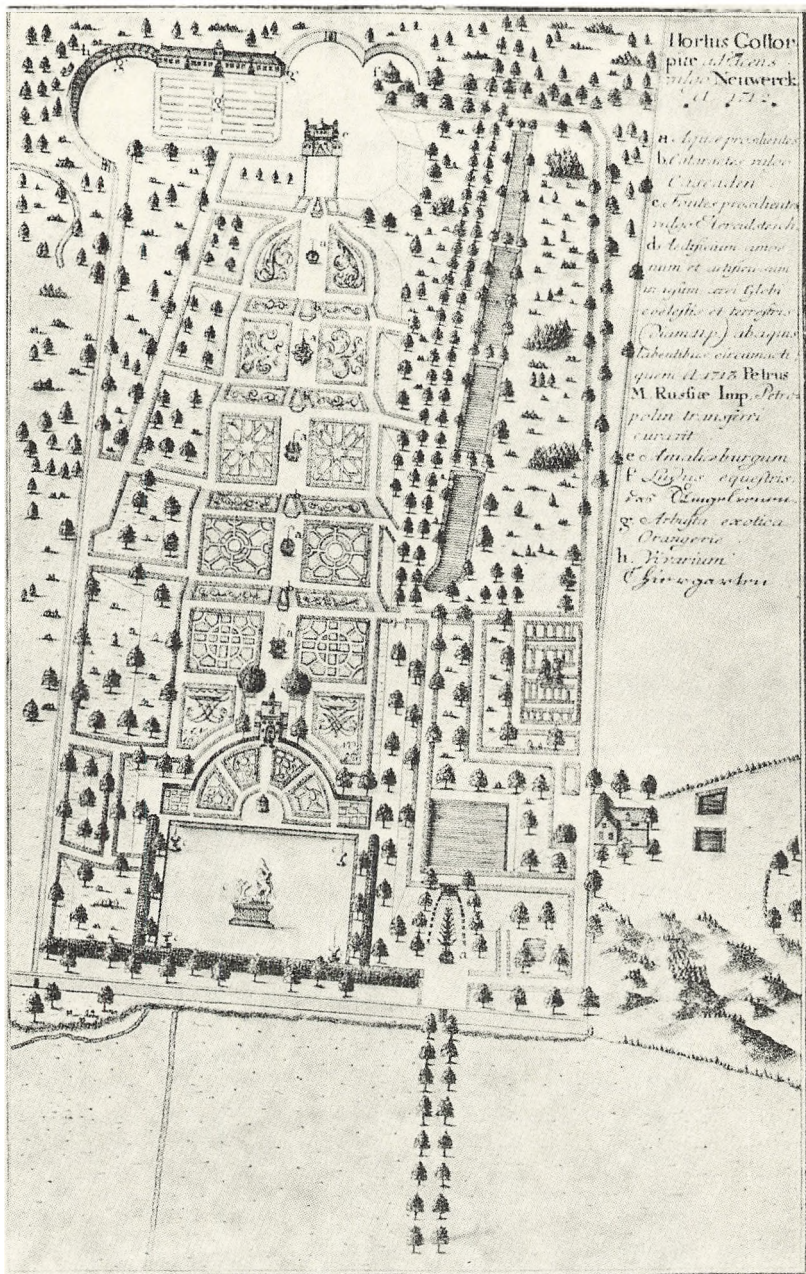 Hortus Gottor
piæ adjacens
vulgo Neuwerck
A 1712.
a Aquæ prosilientes
b. Cataractes vulgo
Cascaden
c Fontes prosilientes
vulgo Herculsteich
d. Ædificium amœ
num et artificiosum
in usum ærei Globi
coelestis et terrestris
ab aquis
labentibus circumacti
quem A 1713 Petrus
M. Russiæ Imp. Petro
polin transferri
curavit
e Amaliæburgum
f Ludus equestris
das Ringelrennen
g Arbusta exotica
Orangerie
h. Vivarium
Thiergarten